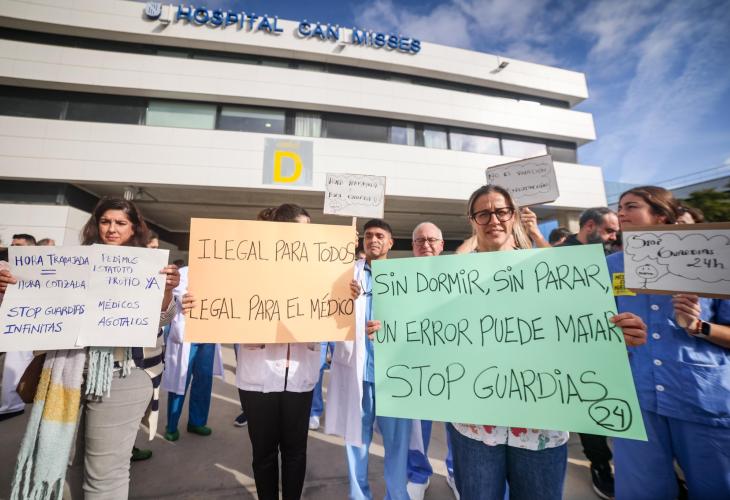 HOSPITAL CAN MISSES
D
HORA TRABAJADA
=
HORA COTIZADA
STOP GUARDIAS
INFINITAS
PEDIMOS
ESTATUTO
PROPIO YA
MÉDICOS
AGOTADOS
ILEGAL PARA TODOS
LEGAL PARA EL MÉDICO
HORA TRABAJADA
HORA COTIZADA
NO ES VOCACIÓN
ES EXPLOTACIÓN
SIN DORMIR, SIN PARAR,
UN ERROR PUEDE MATAR
STOP GUARDIAS
24
STOP
GUARDIAS 24h